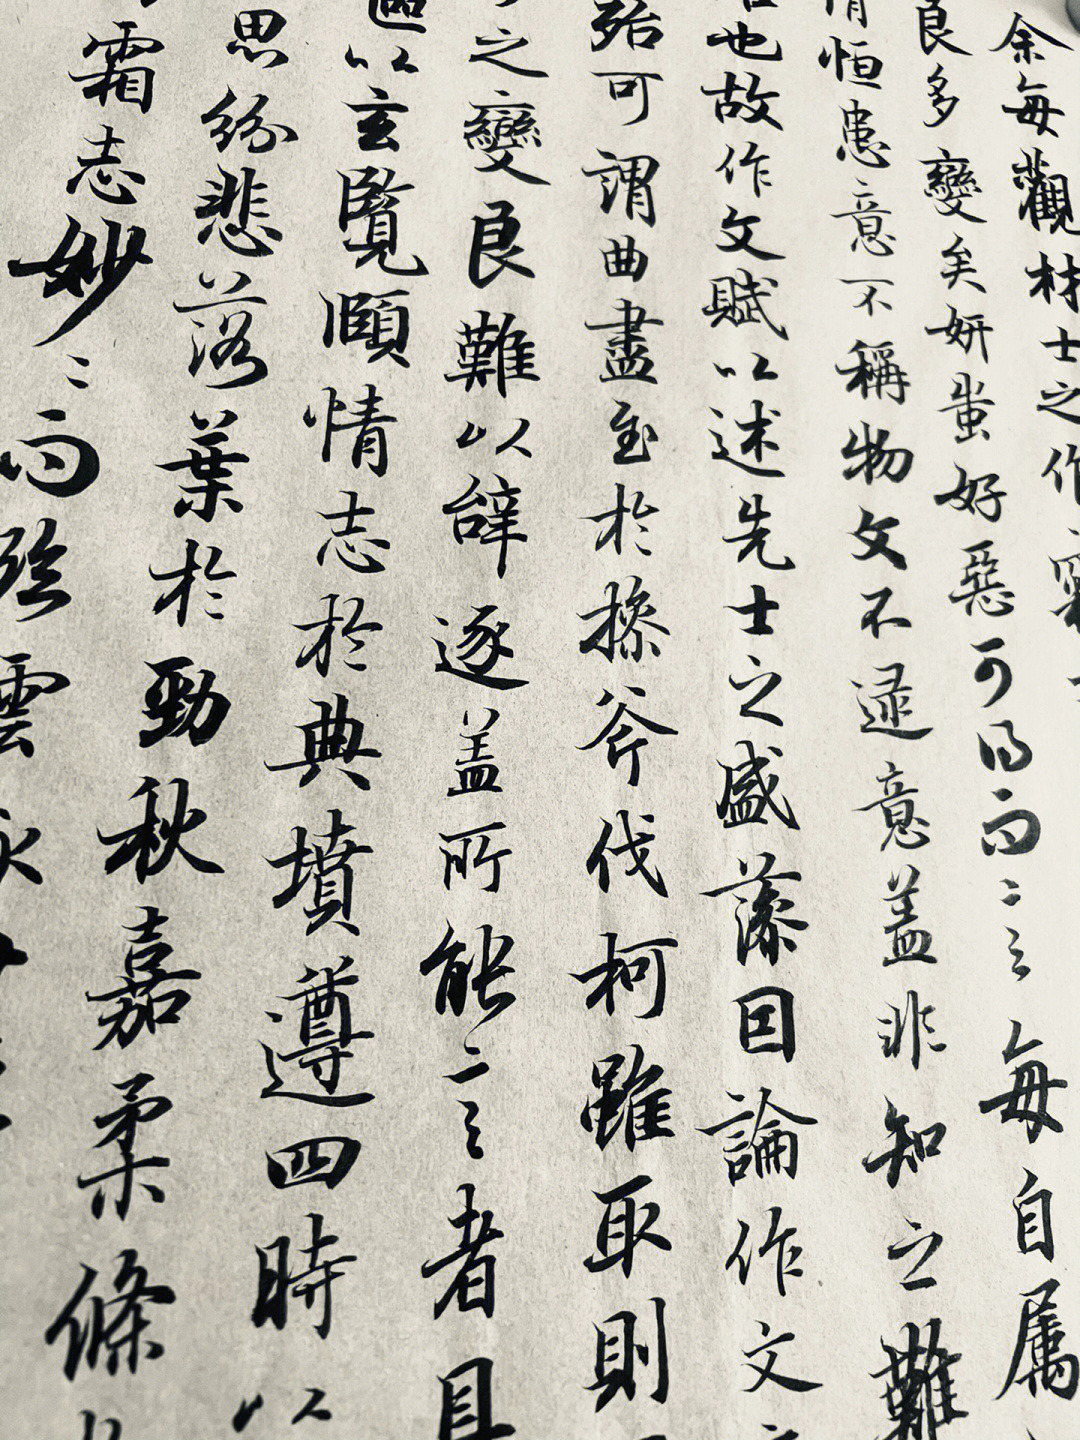 余每觀材士之作竊
良多變矣妍蚩好惡可得而言每自属
情恒患意不稱物文不逮意盖非知之難
也故作文賦以述先士之盛藻因論作文
殆可謂曲盡至於操斧伐柯雖取則
之變良難以辝逐盖所能言者具
區以玄覽頤情志於典墳遵四時以
思紛悲落葉於勁秋嘉柔條
霜志妙〻而臨雲詠